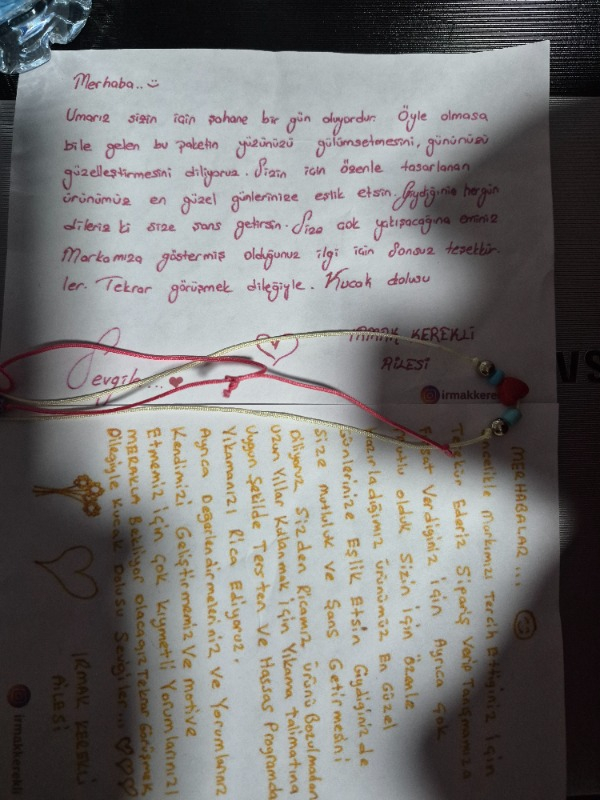 Merhaba..
Umarız sizin için şahane bir gün oluyordur. Öyle olmasa
bile gelen bu paketin yüzünüzü gülümsetmesini, gününüzü
güzelleştirmesini diliyoruz. Sizin için özenle tasarlanan
ürünümüz en güzel günlerinize eşlik etsin. Giydiğiniz hergün
dileriz ki size şans getirsin. Size çok yakışacağına eminiz
Markamıza göstermiş olduğunuz ilgi için Sonsuz teşekkür
ler. Tekrar görüşmek dileğiyle. Kucak dolusu
Sevgiler...
IRMAK KEREKLİ
AİLESİ
irmakkerekli
MERHABALAR...
Öncelikle Markamızı Tercih Ettiğiniz İçin
Teşekür Ederiz Sipariş Verip Tanışmamıza
Fırsat Verdiğiniz İçin Ayrıca Çok
Mutlu olduk Sizin İçin Özenle
Hazırladığımız Ürünümüz En Güzel
Günlerinize Eşlik Etsin Giydiğinizde
Size mutluluk ve Şans Getirmesini
Diliyoruz Sizden Ricamız ürünü Bozulmadan
Uzun Yıllar Kullanmak İçin Yıkama talimatına
Uygun Şekilde Tersten Ve Hassas Programda
Yıkamanızı Rica Ediyoruz.
Ayrıca Değerlendirmeleriniz Ve Yorumlarınız
Kendimizi Geliştirmemiz Ve motive
Etmemiz İçin Çok Kıymetli Yorumlarınızı
MERAKLA Bekliyor olacağız Tekrar Görüşmek
Dileğiyle Kucak Dolusu Sevgiler...
IRMAK KEREKLİ
AİLESİ
irmakkerekli